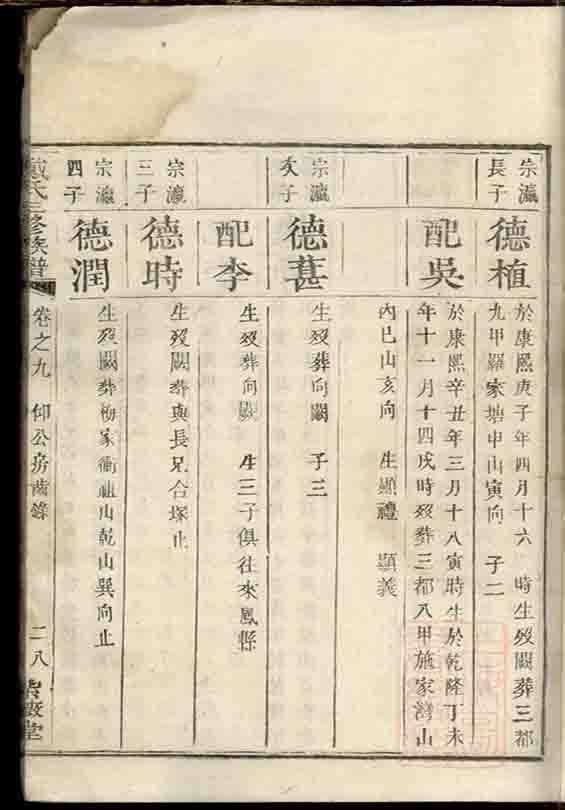 宗瀛
長子
德植
於康熙庚子年四月十六 時生歿闕葬三都
九甲羅家塘申山寅向 子二
配吳
於康熙辛丑年三月十八寅時生於乾隆丁未
年十一月十四戌時歿葬三都八甲施家灣山
內巳山亥向 生顯禮 顯義
宗瀛
次子
德葚
生歿葬向闕 子三
配李
生歿葬向闕 生三子俱往來鳳縣
宗瀛
三子
德時
生歿闕葬與長兄合塚止
宗瀛
四子
德潤
生歿闕葬楊家衝祖山乾山巽向止
戴氏三修族譜
卷之九 仰公房齒錄
二八